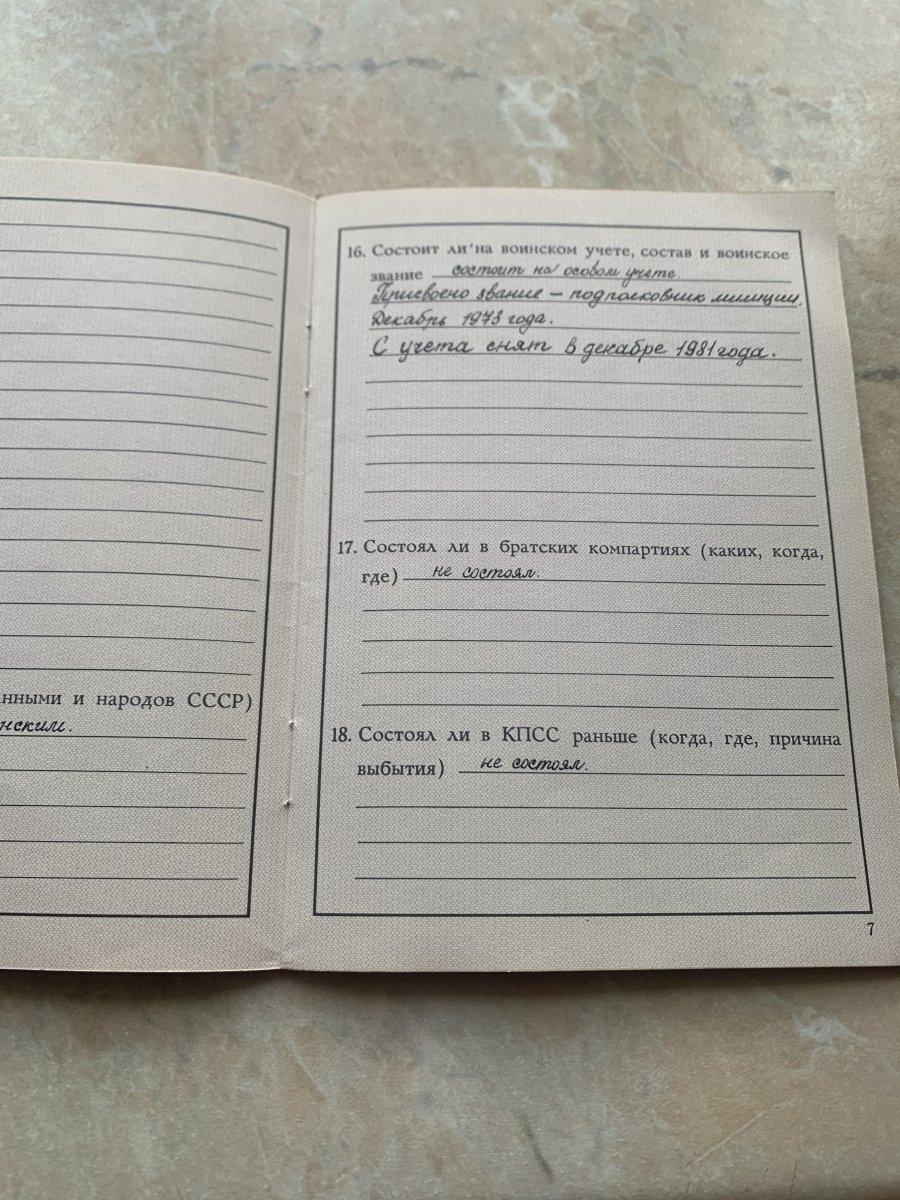 анными и народов СССР)
нским.
16. Состоит ли на воинском учете, состав и воинское
звание состоит на особом учете.
Присвоено звание – подполковник милиции.
Декабрь 1973 года.
С учета снят в декабре 1981 года.
17. Состоял ли в братских компартиях (каких, когда,
где) не состоял.
18. Состоял ли в КПСС раньше (когда, где, причина
выбытия) не состоял.
7